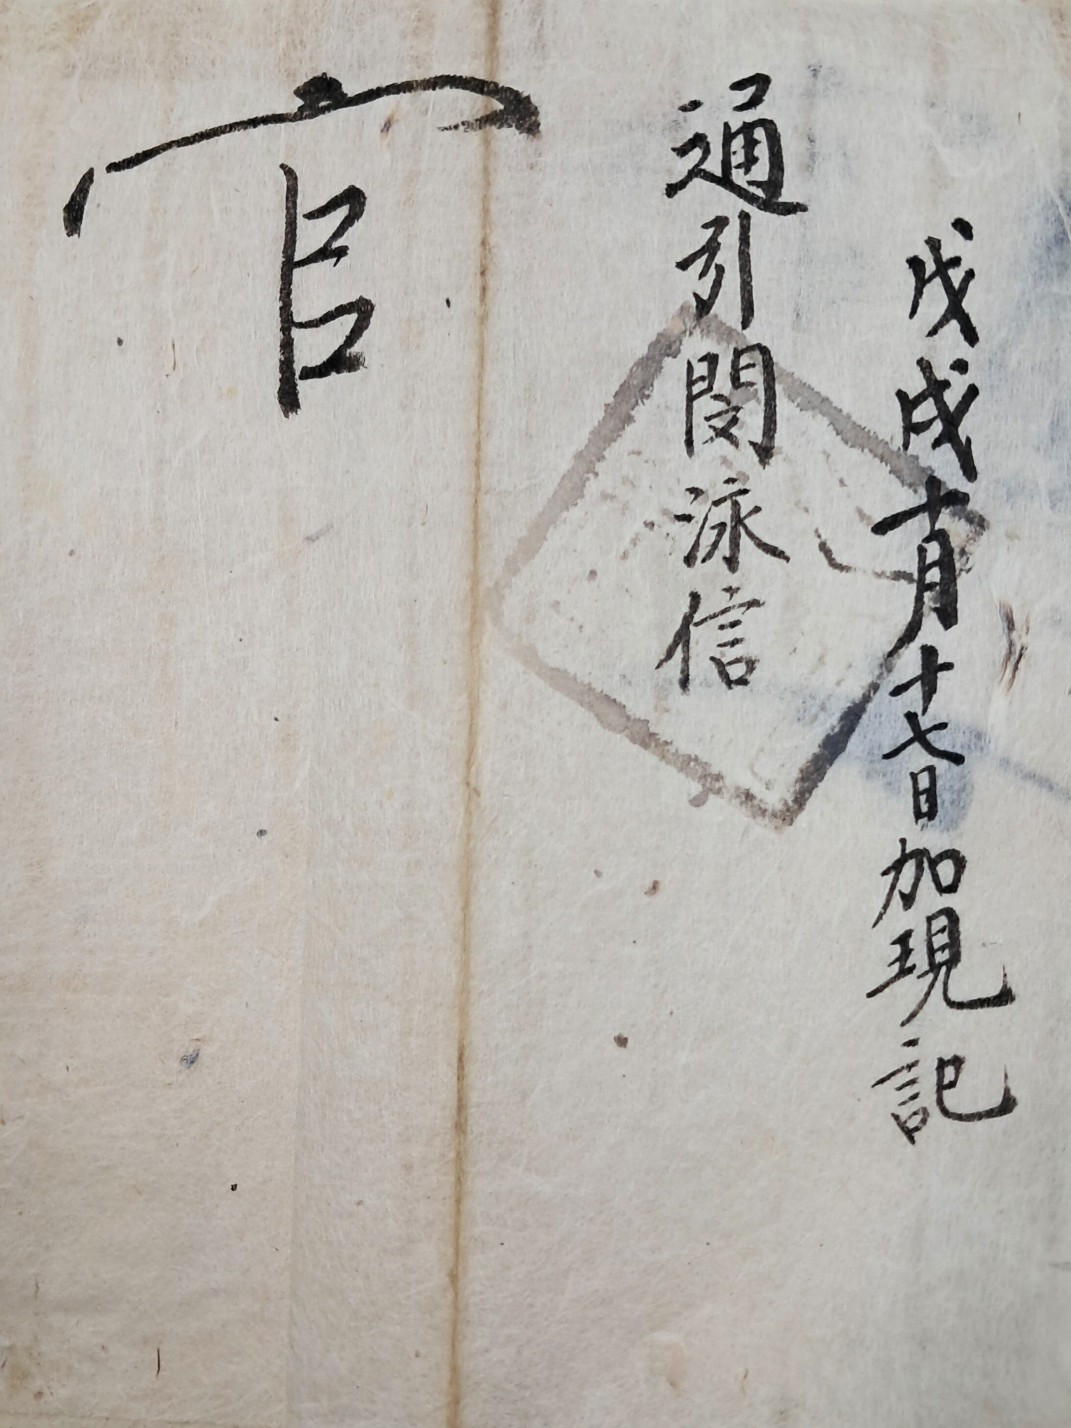 戊戌十月十七日加現記
通引閔泳信
官